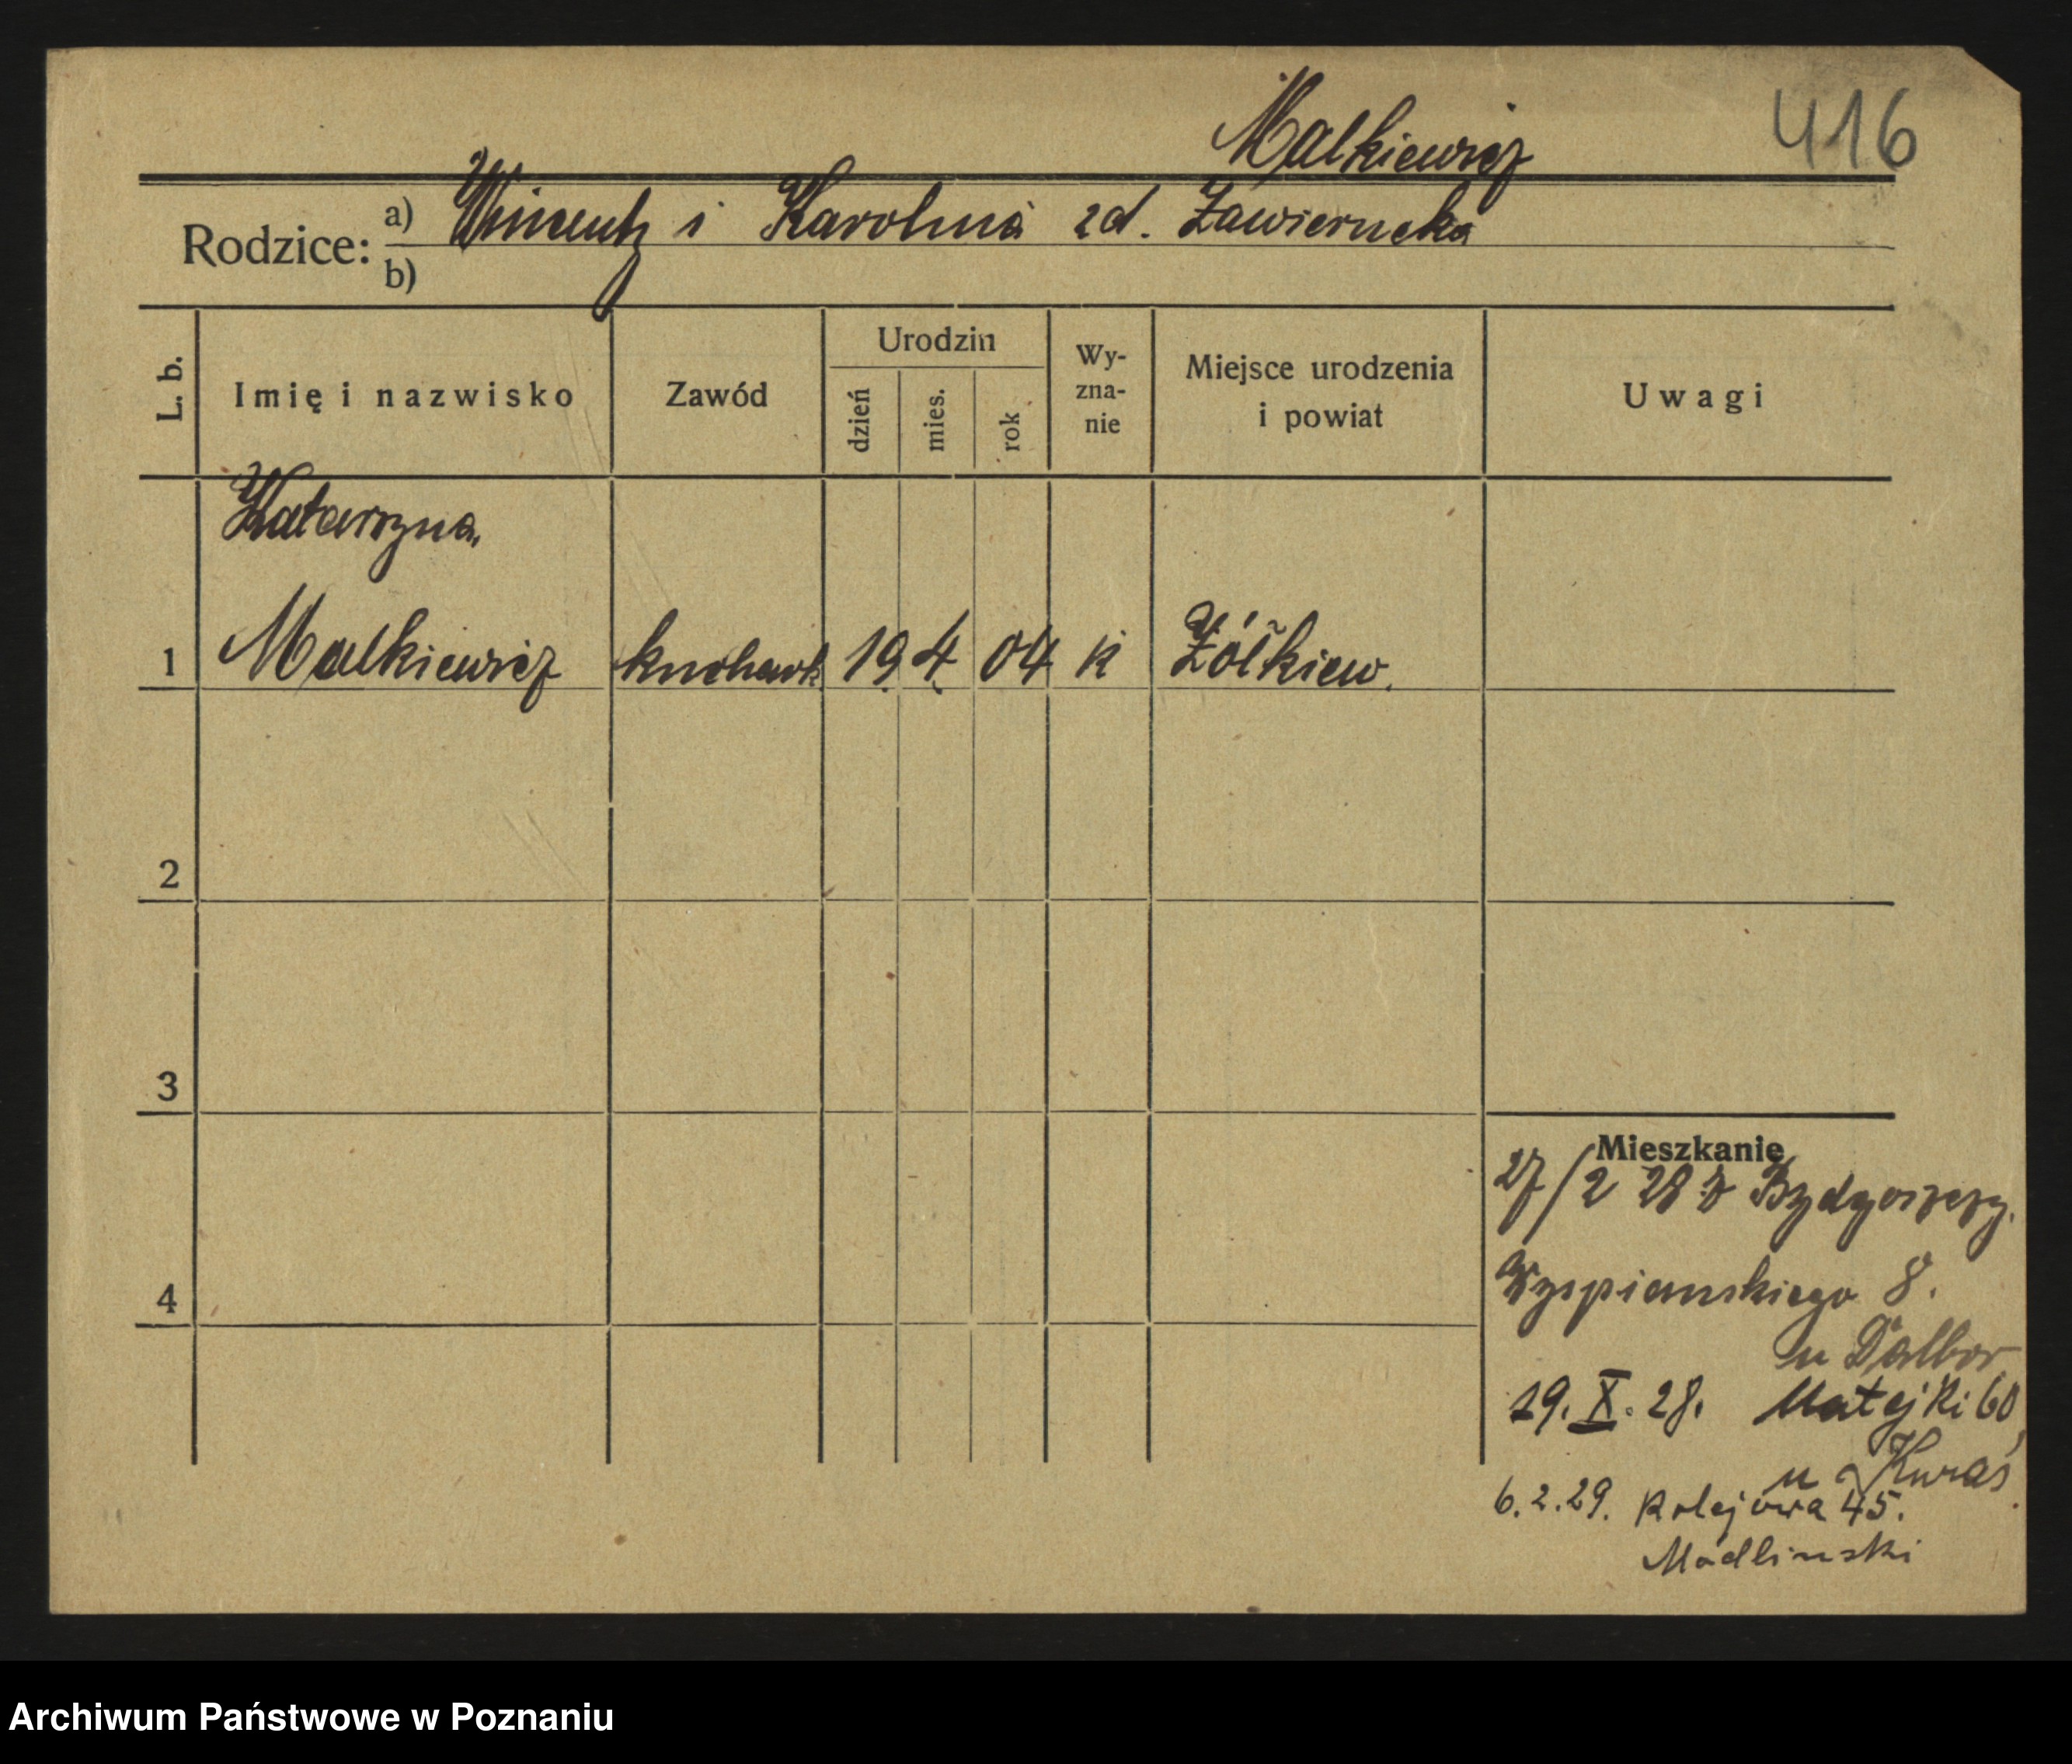 Malkiewicz
416
Rodzice: a) Wincenty i Karolina zd. Zawierncka
b)
L. b.
Imię i nazwisko
Zawód
Urodzin
dzień
mies.
rok
Wy-
zna-
nie
Miejsce urodzenia
i powiat
Uwagi
Katarzyna
1 Malkiewicz kuchark 19 4 04 k Żółkiew.
2
3
4
Mieszkanie
27/2 28 z Bydgoszczy.
Wyspianskiego 8.
u Dalbor
19. X. 28. Matejki 60,
u Kuraś.
6.2.29. Kolejowa 45.
Madlinski
Archiwum Państwowe w Poznaniu